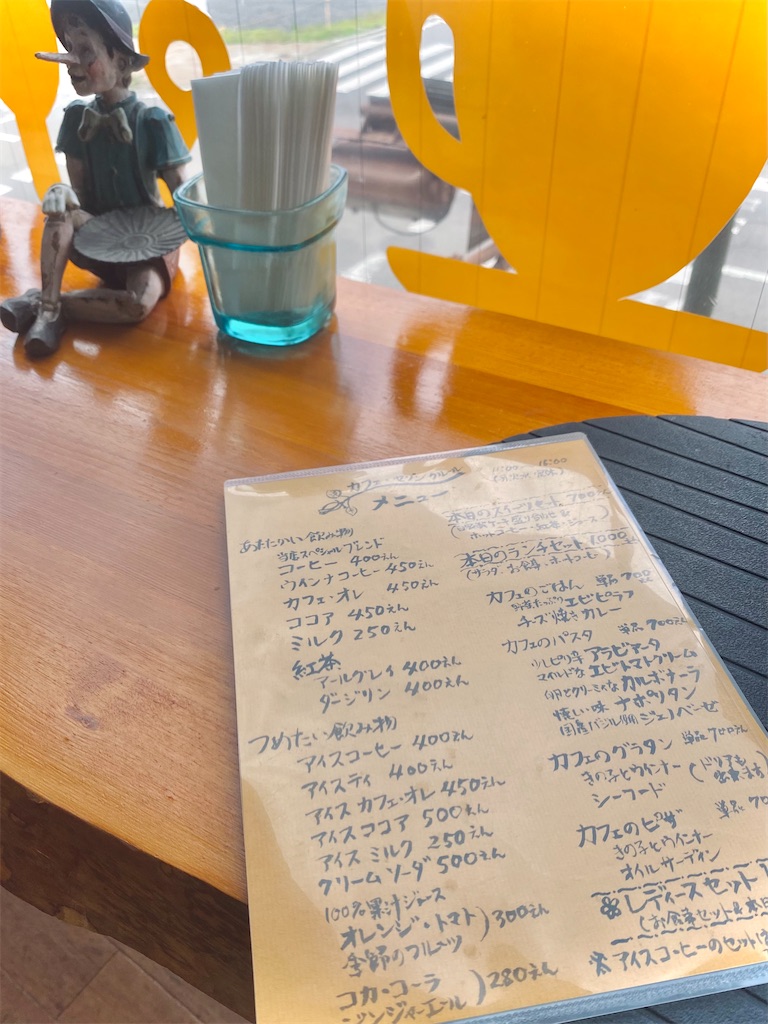 カフェ・セゾンクルール
メニュー
あたたかい飲み物
当店スペシャルブレンド
コーヒー 400えん
ウインナコーヒー 450えん
カフェ・オレ 450えん
ココア 450えん
ミルク 250えん
紅茶
アールグレイ 400えん
ダージリン 400えん
つめたい飲み物
アイスコーヒー 400えん
アイスティ 400えん
アイスカフェ・オレ 450えん
アイスココア 500えん
アイスミルク 250えん
クリームソーダ 500えん
100%果汁ジュース
オレンジ・トマト)300えん
季節のフルーツ
コカ・コーラ
ジンジャーエール)280えん
本日のスイーツセット 700
本日のランチセット 1000
(サラダ・お食事・ホットコーヒー)
カフェのごはん 単品700
野菜たっぷりエビピラフ
チーズ焼きカレー
カフェのパスタ 単品700えん
少しピリ辛アラビアータ
マイルドなエビトマトクリーム
卵とクリーミィなカルボナーラ
懐しい味 ナポリタン
国産バジル使用ジェノベーゼ
カフェのグラタン 単品700えん
きの子とウインナー
シーフード
(ドリアも出来ます)
カフェのピザ 単品70
きの子とウインナー
オイルサーディン
レディースセット
(お食事セット&本日
※アイスコーヒーのセットは